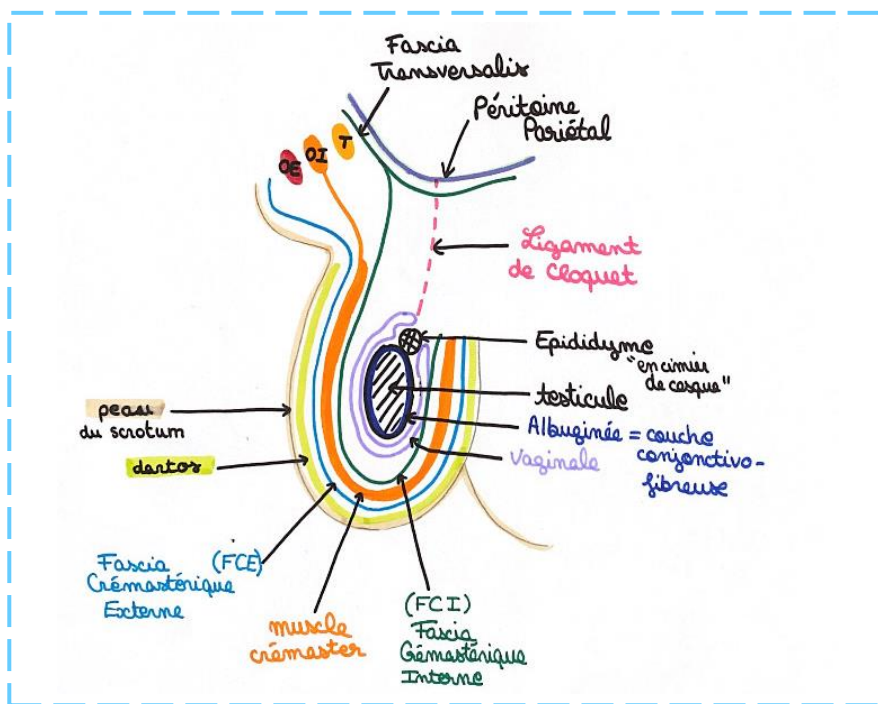 Fascia
Transversalis
Péritoine
Pariétal
OE
OI
T
Ligament
de Cloquet
Epididyme
"en cimier
de casque"
testicule
Albuginée = couche
conjonctivo-
fibreuse
vaginale
peau
du scrotum
dartos
Fascia (FCE)
Crémastérique
Externe
muscle
crémaster
(FCI)
Fascia
Crémastérique
Interne